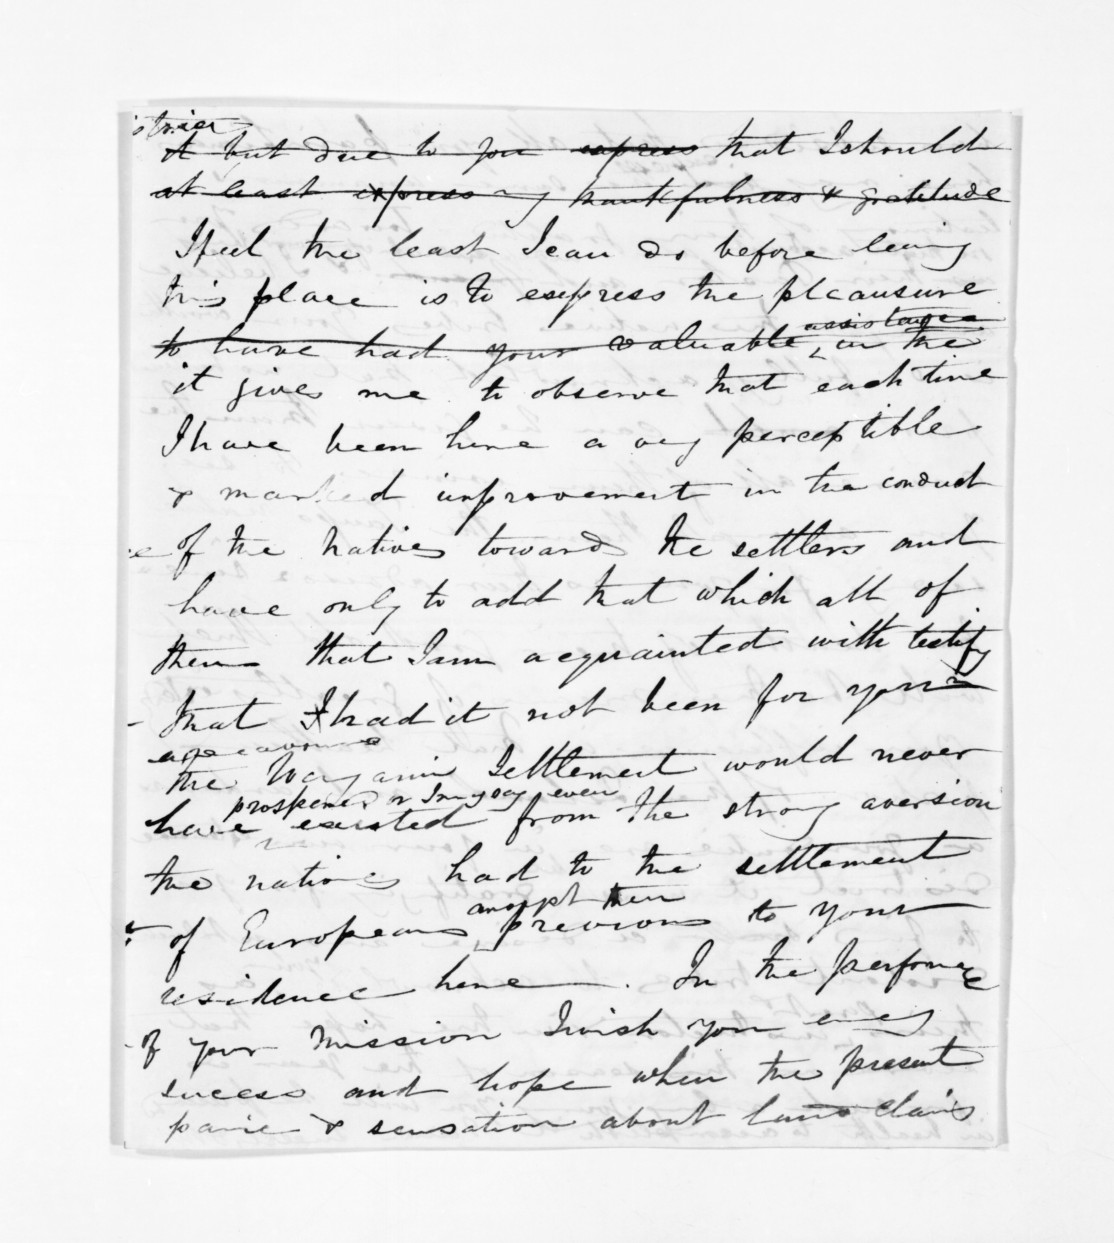 it but due to you express that I should
at least express my thankfulness & gratitude
I feel the least I can do before leaving
this place is to express the pleausure
to have had your valuable assistance in the
it gives me to observe that each time
I have been here a very perceptible
& marked improvement in the conduct
of the natives towards the settlers and
have only to add that which all of
them that I am acquainted with testify
that I had it not been for your
the Settlement would never
prospered or I may say even
have existed from the strong aversion
the natives had to the settlement
amongst them
of Europeans previous to your
residence here. In the performance
of your Mission I wish you every
success and hope when the present
panic & sensation about land claims